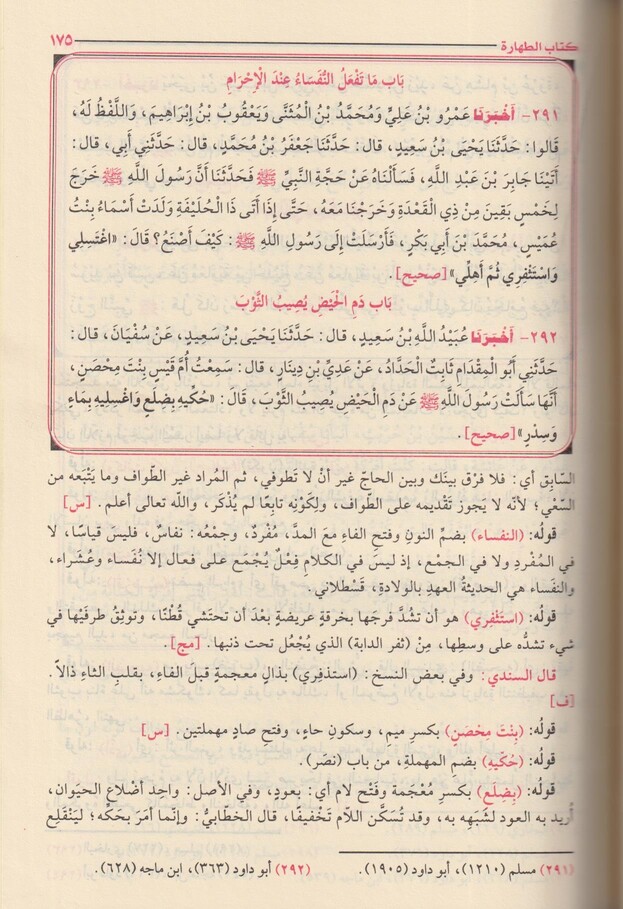 كتاب الطهارة
١٧٥
بَاب مَا تَفْعَلُ النُّفَسَاءُ عِنْدَ الْإِحْرَامِ
٢٩١- أَخْبَرَنَا عَمْرُو بْنُ عَلِيٍّ وَمُحَمَّدُ بْنُ الْمُثَنَّى وَيَعْقُوبُ بْنُ إِبْرَاهِيمَ، وَاللَّفْظُ لَهُ،
قَالُوا: حَدَّثَنَا يَحْيَى بْنُ سَعِيدٍ، قَالَ: حَدَّثَنَا جَعْفَرُ بْنُ مُحَمَّدٍ، قَالَ: حَدَّثَنِي أَبِي، قَالَ:
أَتَيْنَا جَابِرَ بْنَ عَبْدِ اللَّهِ، فَسَأَلْنَاهُ عَنْ حَجَّةِ النَّبِيِّ ﷺ فَحَدَّثَنَا أَنَّ رَسُولَ اللَّهِ ﷺ خَرَجَ
لِخَمْسٍ بَقِينَ مِنْ ذِي الْقَعْدَةِ وَخَرَجْنَا مَعَهُ، حَتَّى إِذَا أَتَى ذَا الْحُلَيْفَةِ وَلَدَتْ أَسْمَاءُ بِنْتُ
عُمَيْسٍ، مُحَمَّدَ بْنَ أَبِي بَكْرٍ، فَأَرْسَلَتْ إِلَى رَسُولِ اللَّهِ ﷺ: كَيْفَ أَصْنَعُ؟ قَالَ: «اغْتَسِلِي
وَاسْتَثْفِرِي ثُمَّ أَهِلِّي» [صحيح].
بَاب دَمِ الْحَيْضِ يُصِيبُ الثَّوْبَ
٢٩٢- أَخْبَرَنَا عُبَيْدُ اللَّهِ بْنُ سَعِيدٍ، قَالَ: حَدَّثَنَا يَحْيَى بْنُ سَعِيدٍ، عَنْ سُفْيَانَ، قَالَ:
حَدَّثَنِي أَبُو الْمِقْدَامِ ثَابِتٌ الْحَدَّادُ، عَنْ عَدِيِّ بْنِ دِينَارٍ، قَالَ: سَمِعْتُ أُمَّ قَيْسٍ بِنْتَ مِحْصَنٍ،
أَنَّهَا سَأَلَتْ رَسُولَ اللَّهِ ﷺ عَنْ دَمِ الْحَيْضِ يُصِيبُ الثَّوْبَ، قَالَ: «حُكِّيهِ بِضِلَعٍ وَاغْسِلِيهِ بِمَاءٍ
وَسِدْرٍ» [صحيح].
السّابِق أي: فلا فرْق بينَك وبين الحاجّ غير أنْ لا تَطوفي، ثم المُراد غير الطّواف وما يَتْبَعه من
السّعْي؛ لأنّه لا يَجوز تَقْديمه على الطّواف، ولِكَوْنِه تابعًا لم يُذْكَر، واللّه تعالى أعلم. [س]
قولُه: (النفساء) بضمِّ النونِ وفتحِ الفاءِ مَعَ المدّ، مُفْردٌ، وجمْعُه: نفاسٌ، فليسَ قياسًا، لا
في المُفْردِ ولا في الجمْعِ، إذ ليسَ في الكلامِ فِعْلٌ يُجْمَع على فعال إلا نُفَساء وعُشَراء،
والنفساء هي الحديثةُ العهدِ بالولادةِ، قَسْطلاني.
قولُه: (استثفِري) هو أن تشدَّ فرجَها بخرقةٍ عريضةٍ بعْدَ أن تحتَشي قُطْنًا، وتوثِقُ طرفَيْها في
شيء تشدُّه على وسطِها، مِنْ (ثفر الدابة) الذي يُجْعُل تحت ذنبها. [مج]
قال السندي: وفي بعض النسخ: (استذفِري) بذالٍ معجمةٍ قبلَ الفاءِ، بقلبِ الثاءِ ذالاً.
[ف]
قولُه: (بِنْتَ مِحْصَنٍ) بكسرِ ميمٍ، وسكونِ حاءٍ، وفتحِ صادٍ مهملتين. [س]
قولُه: (حُكّيهِ) بضمِ المهملةِ، من باب (نصَر).
قولُه: (بِضِلَعٍ) بكسرِ مُعْجَمة وفَتْح لام أي: بعودٍ، وفي الأصل: واحِد أضْلاع الحيَوان،
أُريد به العود لشَبَهِه به، وقد تُسَكَّن اللاّم تَخْفيفًا، قال الخطابيُّ: وإنّما أمَرَ بحَكِّه؛ ليَنْقَلِع
(٢٩١) مسلم (١٢١٠)، أبو داود (١٩٠٥).
(٢٩٢) أبو داود (٣٦٣)، ابن ماجه (٦٢٨).